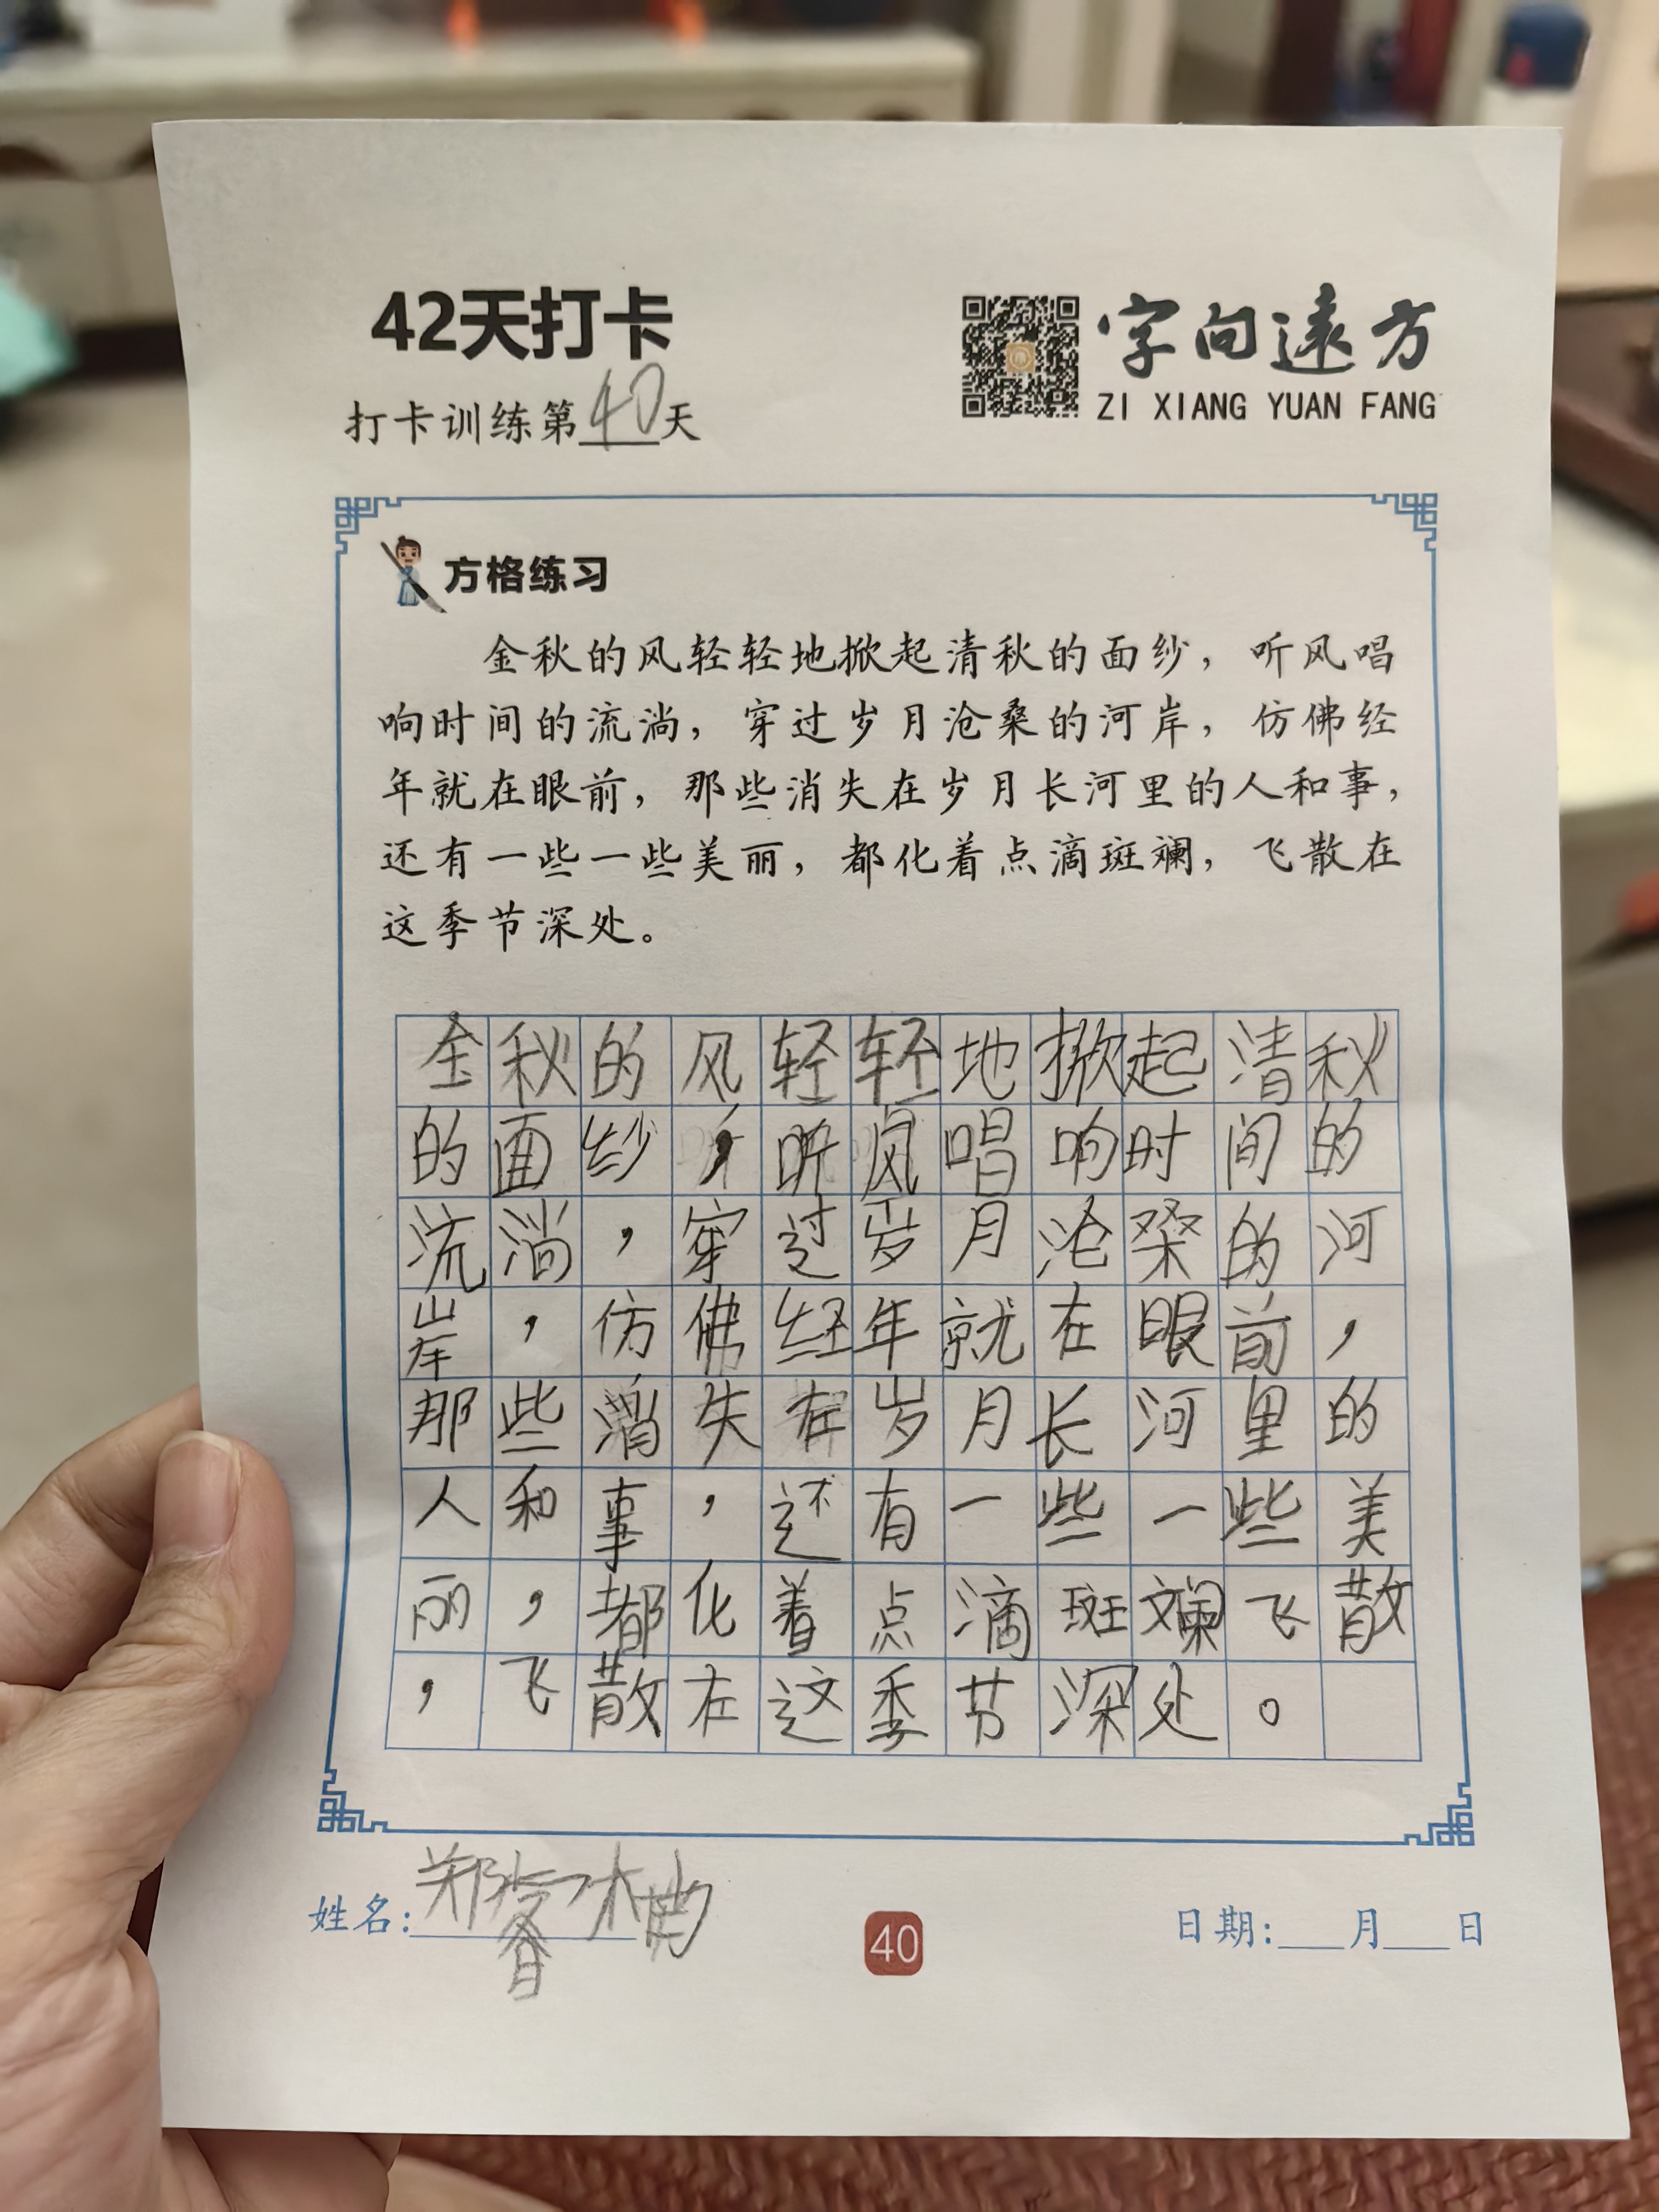 42天打卡
打卡训练第40天
字向遠方
ZI XIANG YUAN FANG
方格练习
金秋的风轻轻地掀起清秋的面纱，听风唱
响时间的流淌，穿过岁月沧桑的河岸，仿佛经
年就在眼前，那些消失在岁月长河里的人和事，
还有一些一些美丽，都化着点滴斑斓，飞散在
这季节深处。
金秋的风轻轻地掀起清秋
的面纱，听风唱响时间的
流淌，穿过岁月沧桑的河
岸，仿佛经年就在眼前，
那些消失在岁月长河里的
人和事，还有一些一些美
丽，都化着点滴斑斓飞散
，飞散在这季节深处。
姓名:郑
40
日期:___月___日